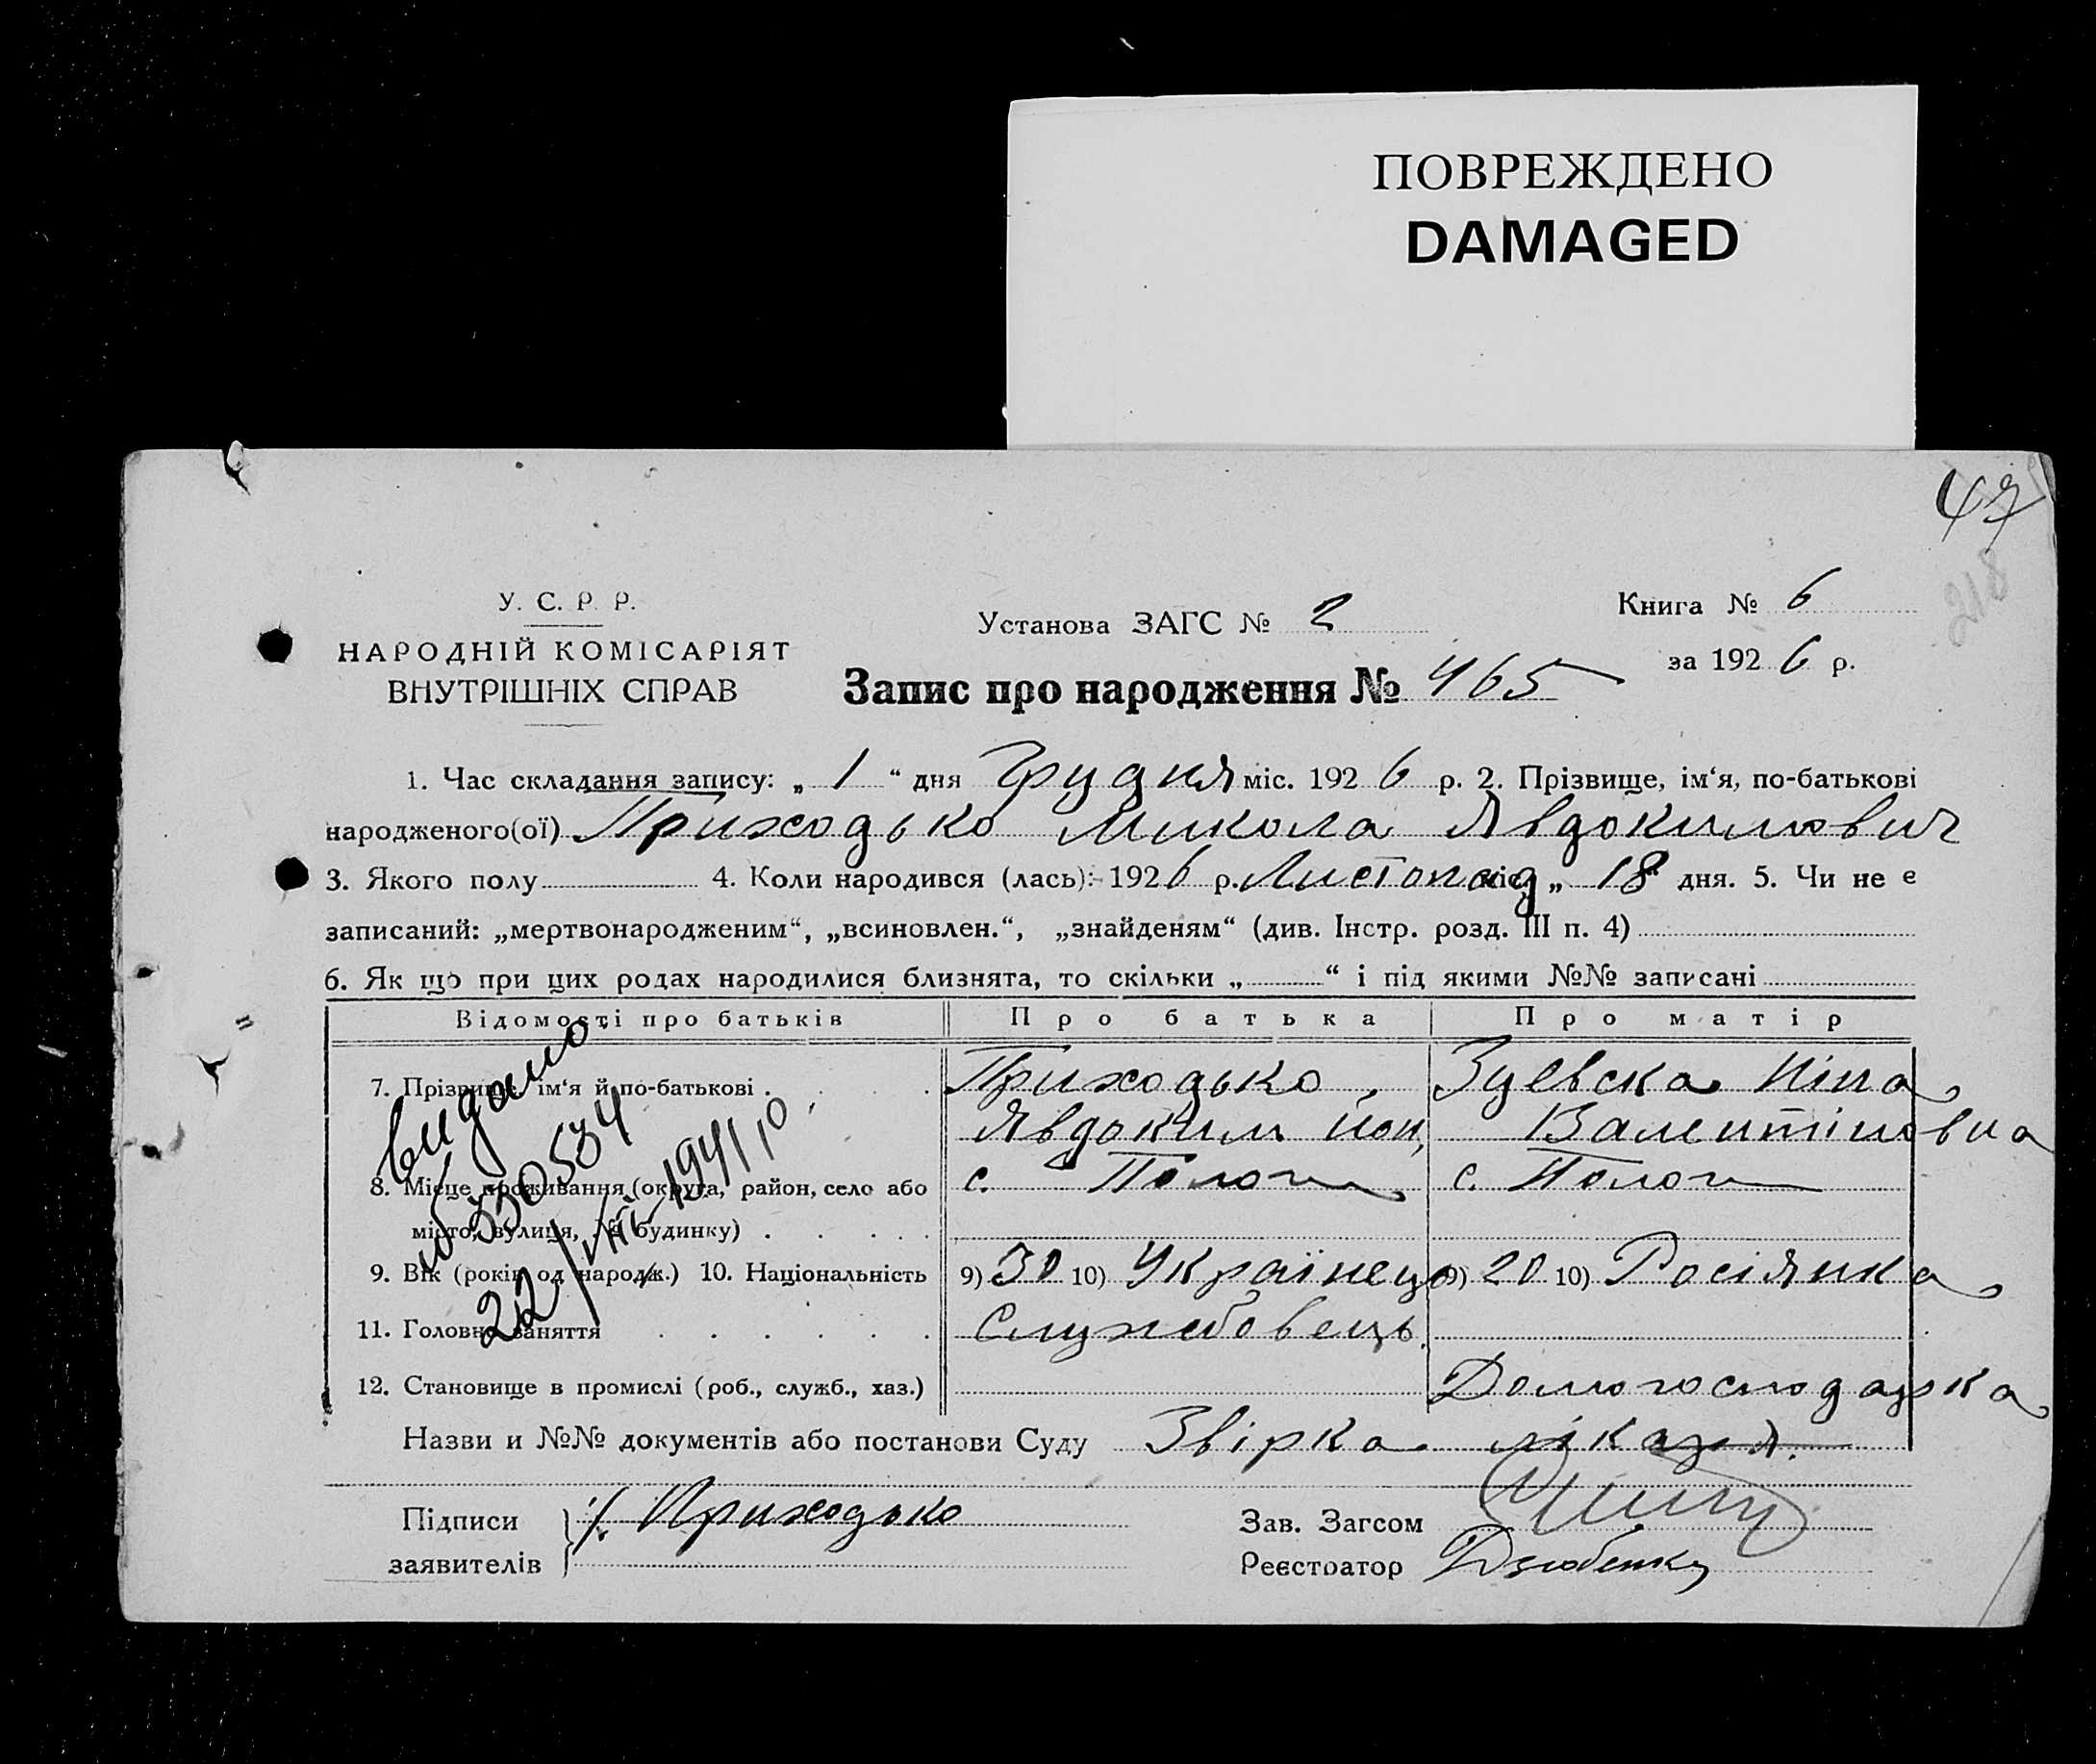 ПОВРЕЖДЕНО
DAMAGED
47
218
У. С. Р. Р.
НАРОДНІЙ КОМІСАРІЯТ
ВНУТРІШНІХ СПРАВ
Установа ЗАГС № 2
Книга № 6
за 1926 р.
Запис про народження № 465
1. Час складання запису: „ 1 “ дня Грудня міс. 1926 р. 2. Прізвище, ім‘я, по-батькові
народженого(ої) Приходько Микола Явдокимович
3. Якого полу 4. Коли народився (лась):-1926 р. Листопад міс. „ 18 “ дня. 5. Чи не є
записаний: „мертвонародженим“, „всиновлен.“, „знайденям“ (див. Інстр. розд. III п. 4)
6. Як що при цих родах народилися близнята, то скільки „ “ і під якими №№ записані
Відомості про батьків Про батька Про матір
7. Прізвище, ім‘я й по-батькові . . . . Приходько, Зуевска Ніна
Явдоким Йон. Валентіновна
8. Місце проживання (округа, район, село або с. Пологи с. Пологи
місто, вулиця, № будинку) . . . . .
9. Вік (років од народж.) 10. Національність 9) 30 10) Українець 9) 20 10) Росіянка
11. Головне заняття . . . . . . Службовець.
12. Становище в промислі (роб., служб., хаз.) Домогосподарка
видано
№ 530534
22/VII-1941 р.
Назви и №№ документів або постанови Суду Звірка лікаря.
Підписи заявителів Приходько
Зав. Загсом
Реєстратор Дзюбенко